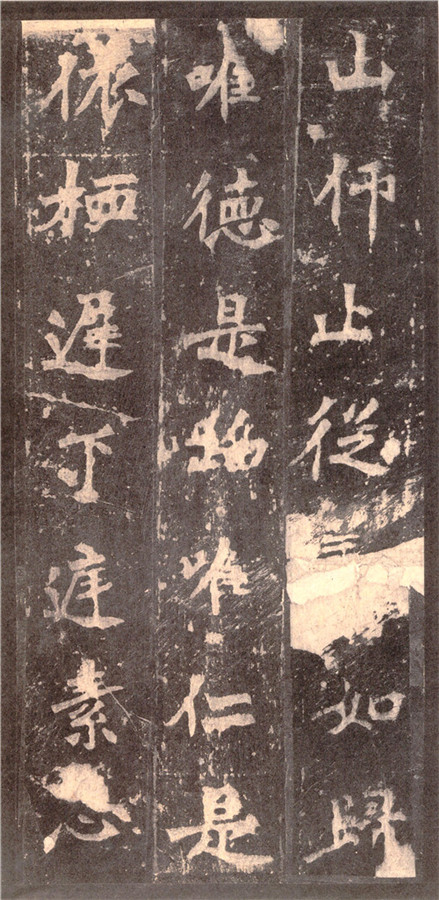 山仰止從如歸
唯德是唯仁是
依栖遲下庭素心